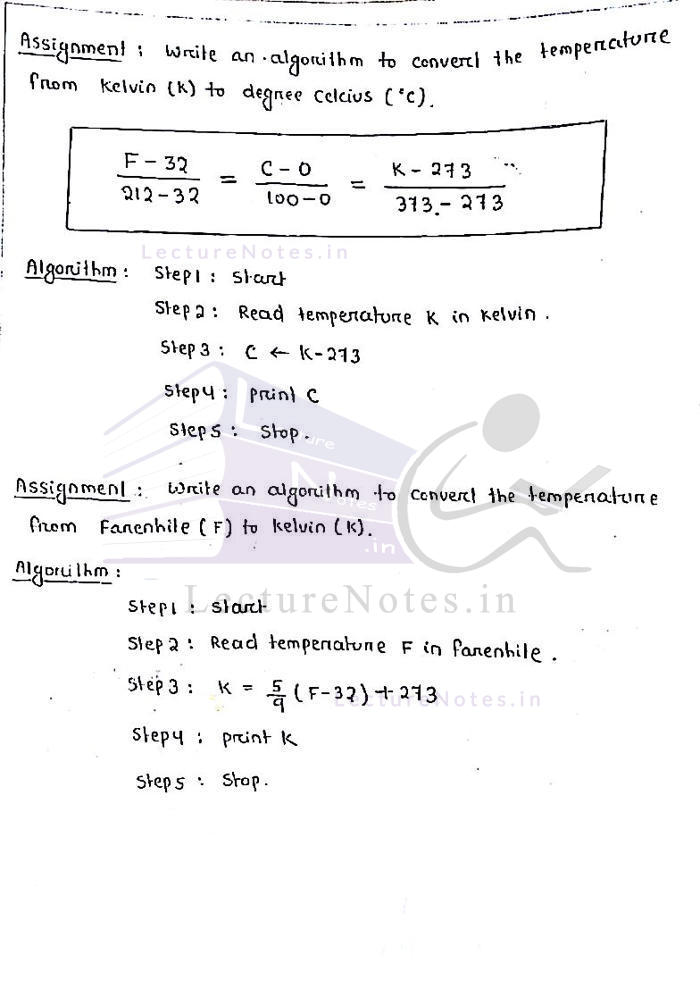 Assignment : Write an algorithm to convert the temperature
from Kelvin (K) to degree Celcius (°C).
F - 32 / 212 - 32 = C - 0 / 100 - 0 = K - 273 / 373 - 273
LectureNotes.in
Algorithm : Step1 : Start
Step 2 : Read temperature K in Kelvin .
Step 3 : C ← K-273
Step 4 : print C
Step 5 : Stop .
Lecture
Assignment : Write an algorithm to convert the temperature
Notes
from Farenhite (F) to Kelvin (K).
.in
Algorithm :
LectureNotes.in
Step1 : Start
Step 2 : Read temperature F in farenhite .
Step 3 : K = 5/9 (F-32) + 273
LectureNotes.in
Step 4 : print K
Step 5 : Stop .